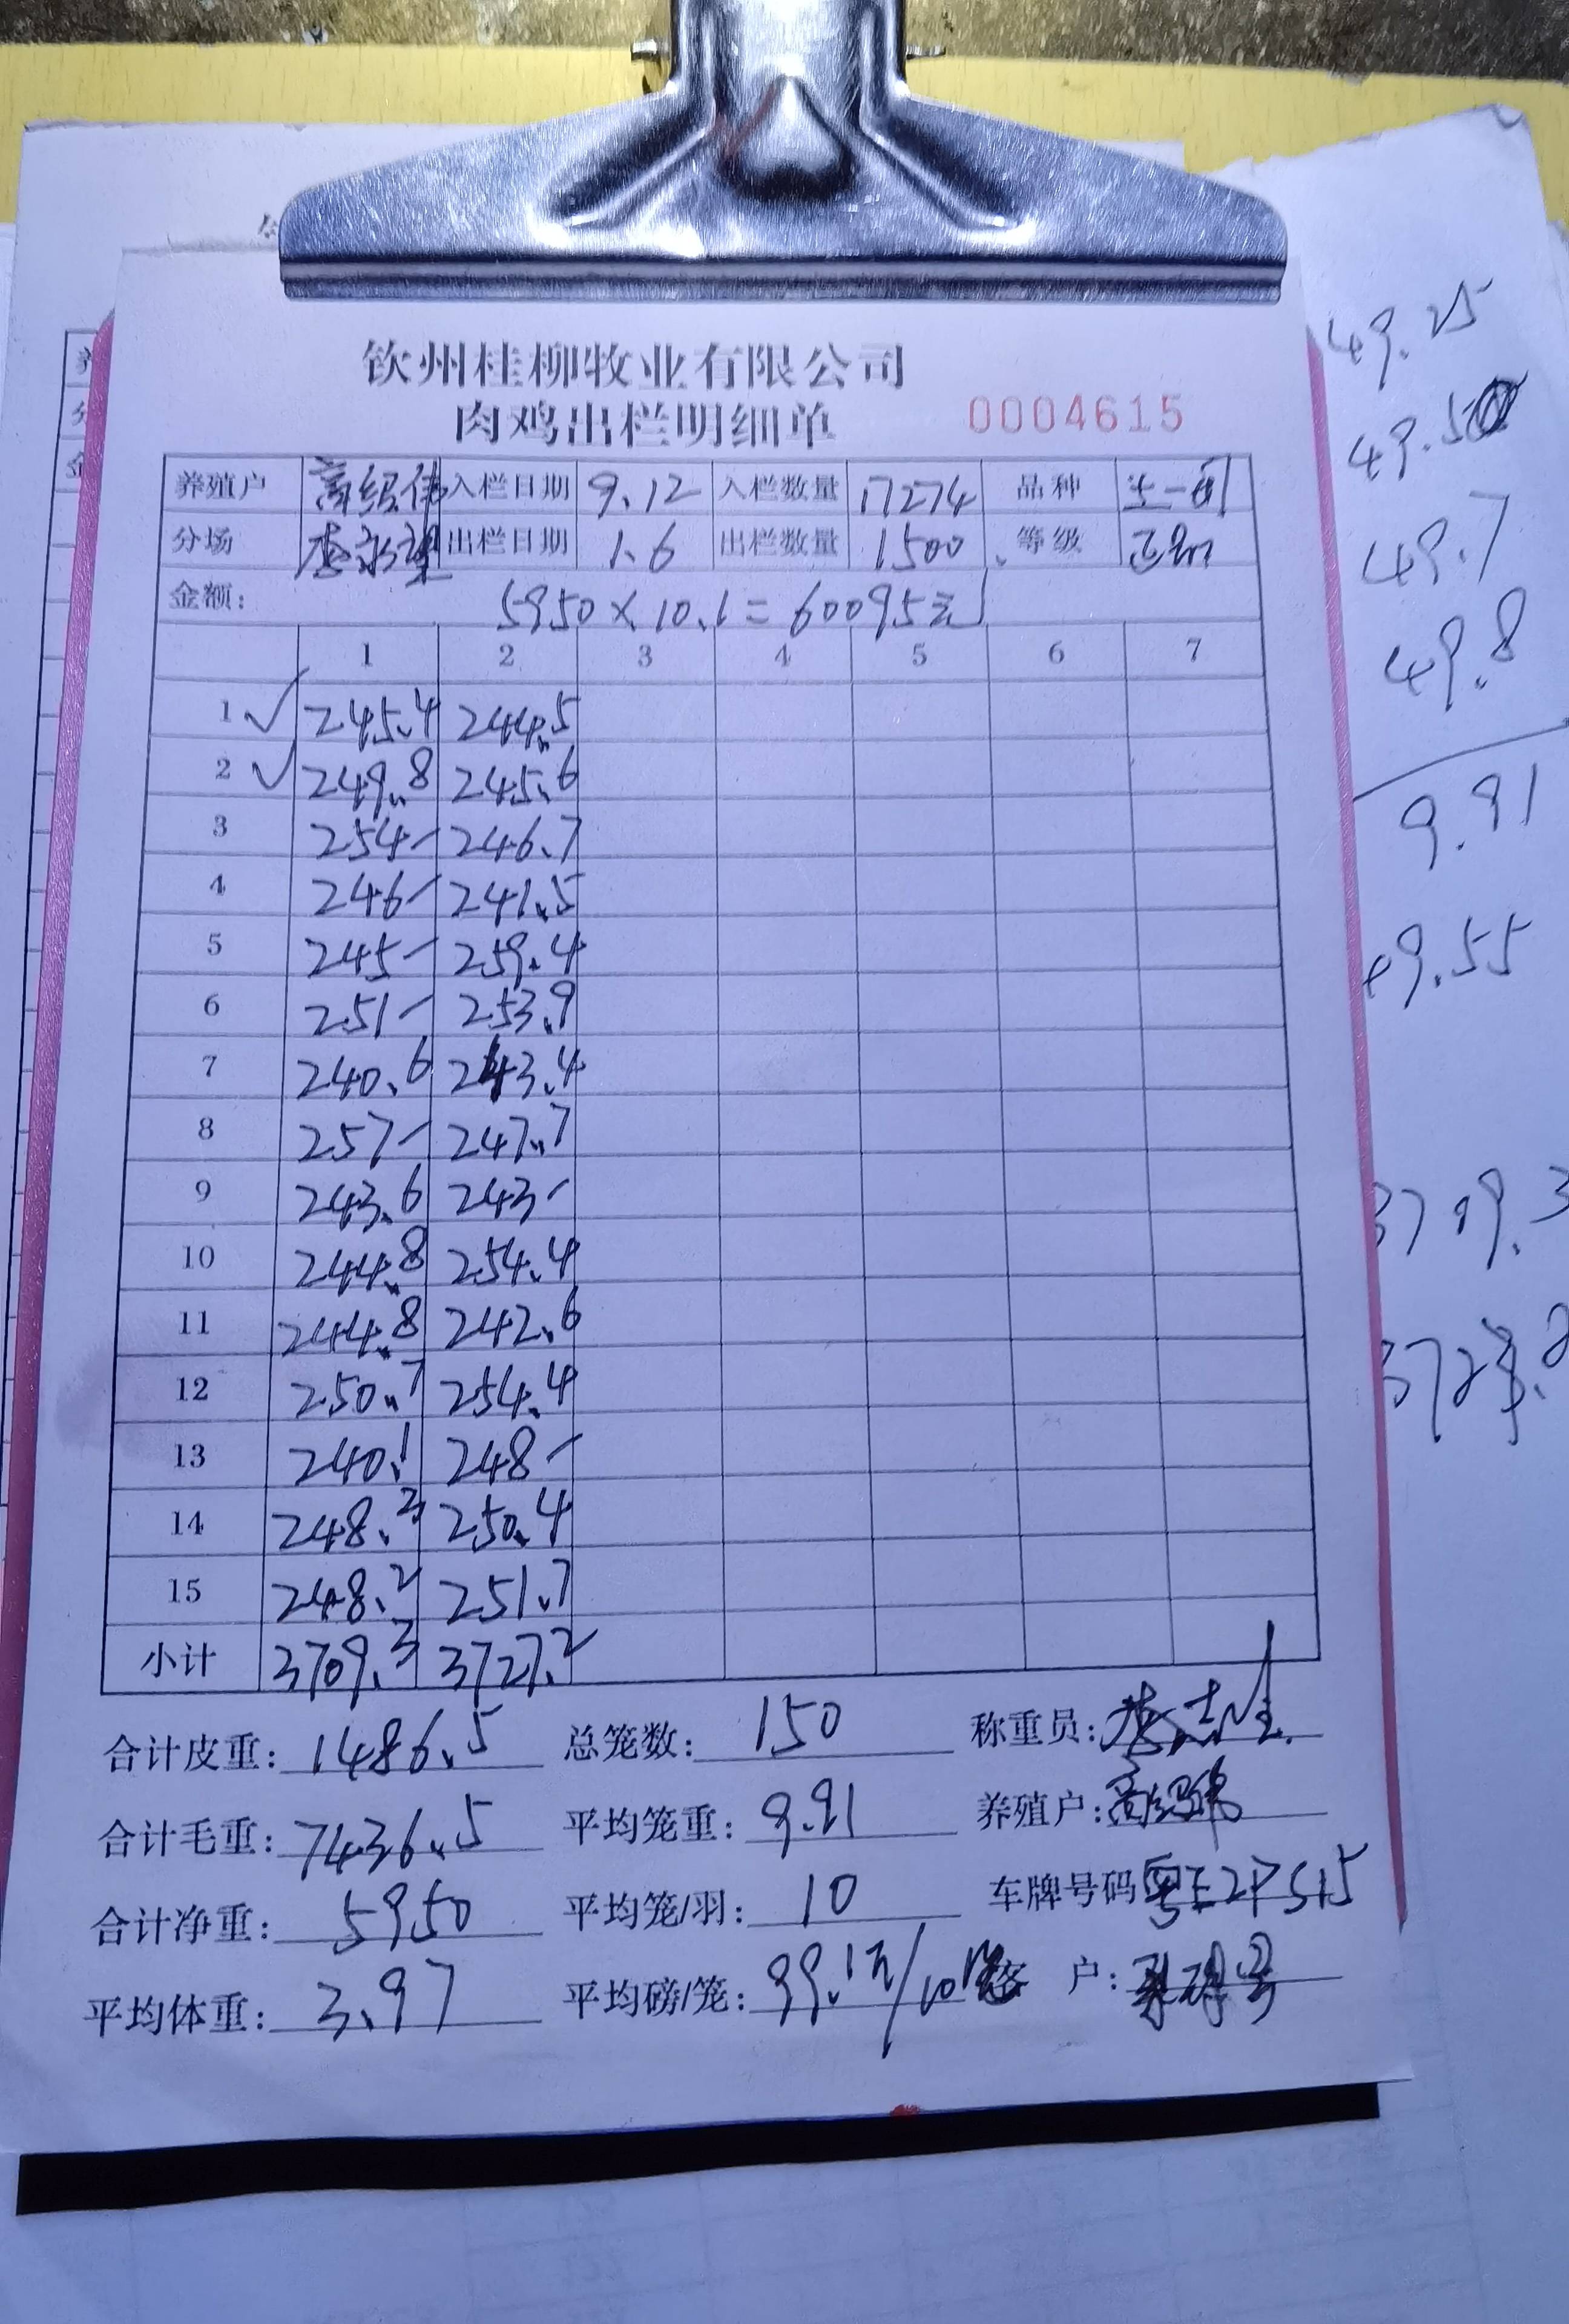 钦州桂柳牧业有限公司
肉鸡出栏明细单 0004615
养殖户 高绍伟 入栏日期 9.12 入栏数量 17274 品种 土一
分场 李 出栏日期 1.6 出栏数量 1500 等级 正品
金额: 5950×10.1=60095元
1 2 3 4 5 6 7
1 ✓ 245.4 244.5
2 ✓ 249.8 245.6
3 254- 246.7
4 246- 241.5
5 245- 259.4
6 251- 253.9
7 240.6 243.4
8 257- 247.7
9 243.6 243-
10 244.8 254.4
11 244.8 242.6
12 250.7 254.4
13 240.1 248-
14 248.3 250.4
15 248.2 251.7
小计 3709.3 3727.2
合计皮重: 1486.5 总笼数: 150 称重员: 李
合计毛重: 7436.5 平均笼重: 9.91 养殖户: 高绍伟
合计净重: 5950 平均笼/羽: 10 车牌号码 粤E2P515
平均体重: 3.97 平均磅/笼: 99.1元/10 客 户:
49.25
49.5
49.7
49.8
9.91
49.55
3709.3